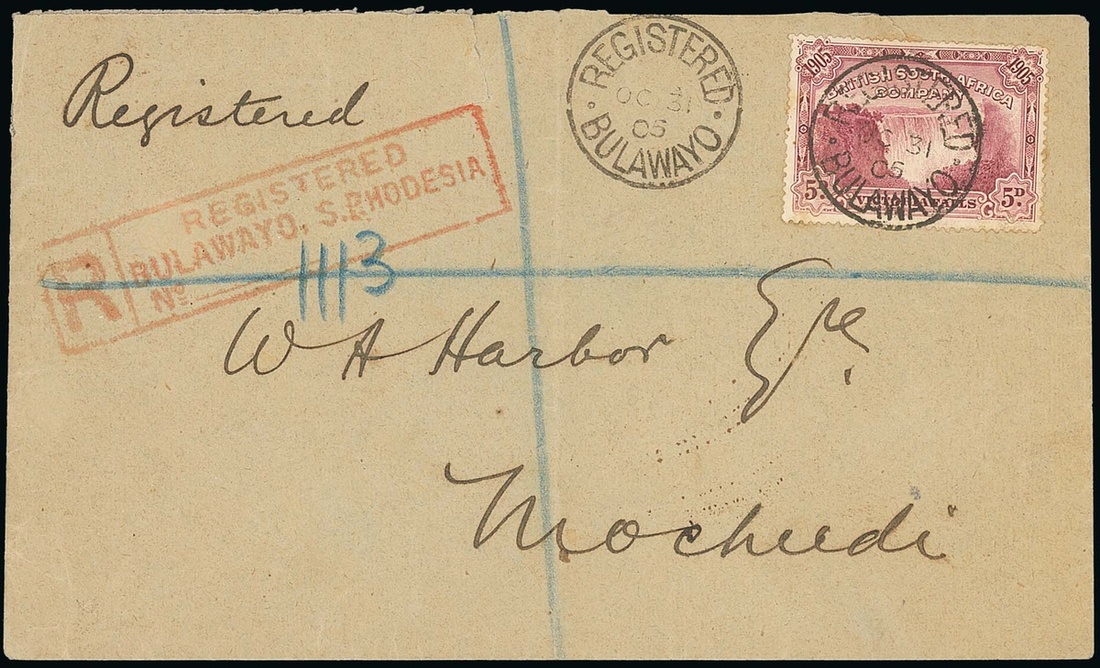 Registered
REGISTERED
OC 31
05
BULAWAYO
1905 1905
BRITISH SOUTH AFRICA
COMPANY
REGISTERED
OC 31
05
BULAWAYO
5D. VICTORIA FALLS 5D.
REGISTERED
R BULAWAYO, S. RHODESIA
No 1113
W A Harbor Esqre.
Mochudi